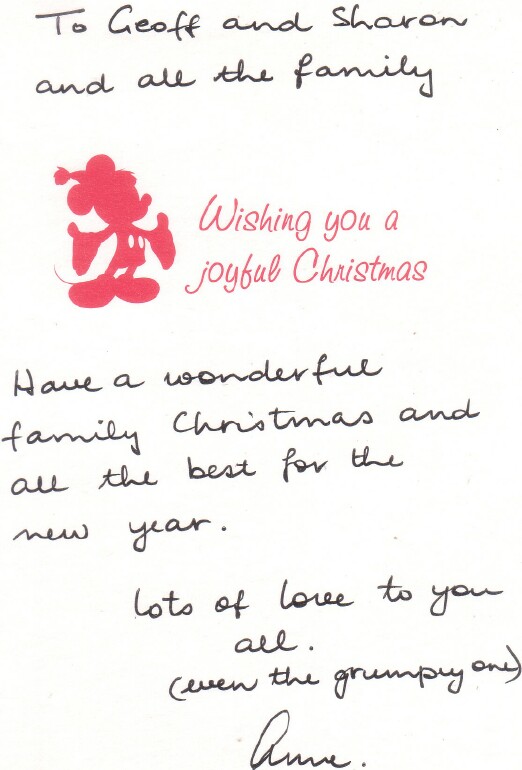 To Geoff and Sharon
and all the family
Wishing you a
joyful Christmas
Have a wonderful
family Christmas and
all the best for the
new year.
lots of love to you
all.
(even the grumpey one)
Anne.